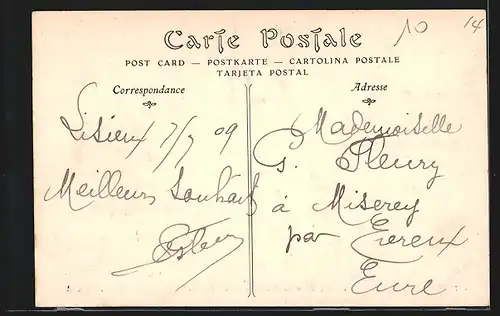 10
14
Carte Postale
POST CARD — POSTKARTE — CARTOLINA POSTALE
TARJETA POSTAL
Correspondance
Lisieux 7/7 09
Meilleurs Souhaits
Adresse
Mademoiselle
G. Fleury
à Miserey
par Evreux
Eure